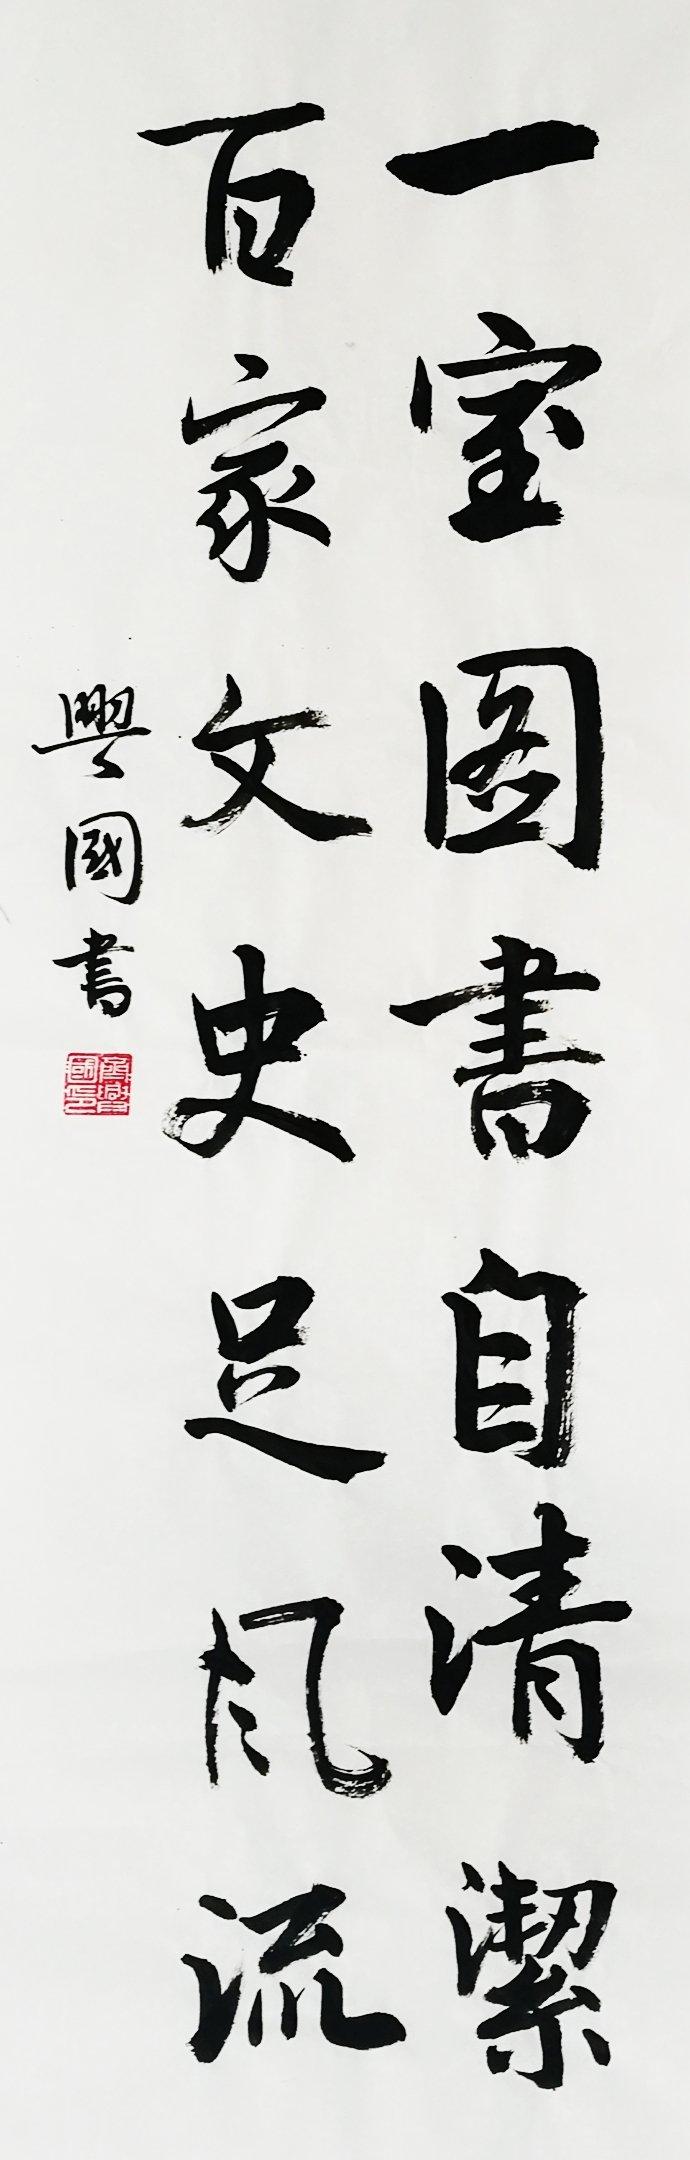 一室图書自清潔
百家文史足风流
興國書